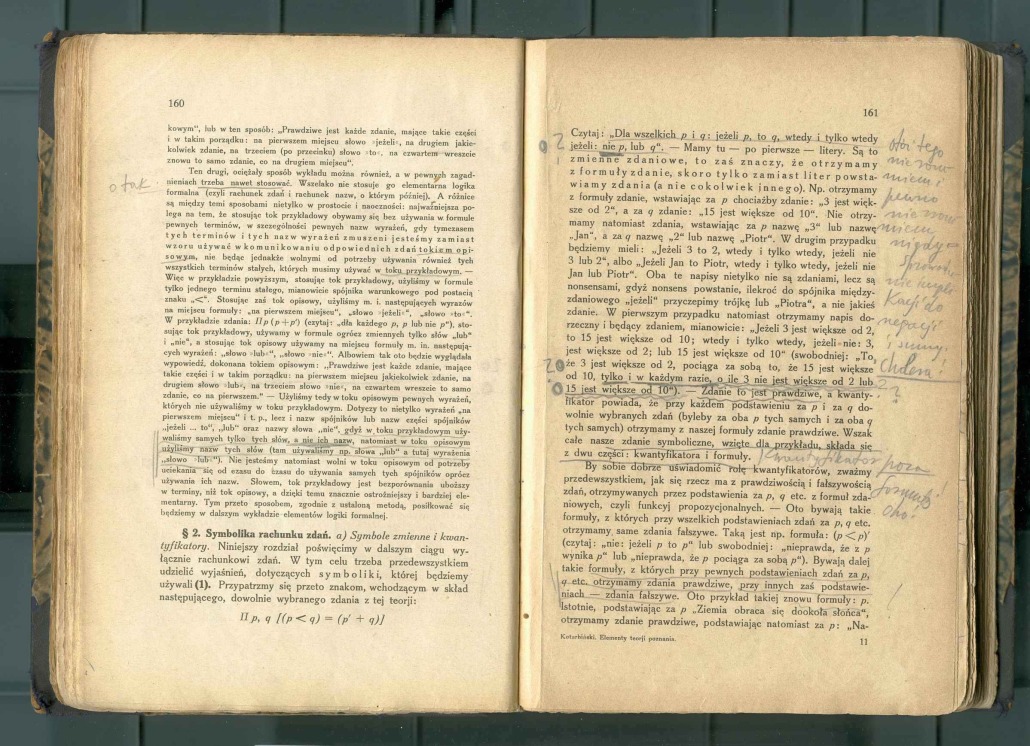 160
kowym", lub w ten sposób: „Prawdziwe jest każde zdanie, mające takie części
i w takim porządku: na pierwszem miejscu słowo »jeżeli«, na drugiem jakie-
kolwiek zdanie, na trzeciem (po przecinku) słowo »to«, na czwartem wreszcie
znowu to samo zdanie, co na drugiem miejscu".
Ten drugi, ociężały sposób wykładu można również, a w pewnych zagad-
nieniach trzeba nawet stosować. Wszelako nie stosuje go elementarna logika
formalna (czyli rachunek zdań i rachunek nazw, o którym później). A różnice
są między temi sposobami nietylko w prostocie i naoczności: najważniejsza po-
lega na tem, że stosując tok przykładowy obywamy się bez używania w formule
pewnych terminów, w szczególności pewnych nazw wyrażeń, gdy tymczasem
tych terminów i tych nazw wyrażeń zmuszeni jesteśmy zamiast
wzoru używać w komunikowaniu odpowiednich zdań tokiem opi-
sowym, nie będąc jednakże wolnymi od potrzeby używania również tych
wszystkich terminów stałych, których musimy używać w toku przykładowym. —
Więc w przykładzie powyższym, stosując tok przykładowy, użyliśmy w formule
tylko jednego terminu stałego, mianowicie spójnika warunkowego pod postacią
znaku „<". Stosując zaś tok opisowy, użyliśmy m. i. następujących wyrazów
na miejscu formuły: „na pierwszem miejscu", „słowo »jeżeli«", „słowo »to«".
W przykładzie zdania: Π p (p + p') (czytaj: „dla każdego p, p lub nie p"), sto-
sując tok przykładowy, używamy w formule ogrócz zmiennych tylko słów „lub"
i „nie", a stosując tok opisowy używamy na miejscu formuły m. in. następują-
cych wyrażeń: „słowo »lub«", „słowo »nie«". Albowiem tak oto będzie wyglądała
wypowiedź, dokonana tokiem opisowym: „Prawdziwe jest każde zdanie, mające
takie części i w takim porządku: na pierwszem miejscu jakiekolwiek zdanie, na
drugiem słowo »lub«, na trzeciem słowo »nie«, na czwartem wreszcie to samo
zdanie, co na pierwszem." — Użyliśmy tedy w toku opisowym pewnych wyrażeń,
których nie używaliśmy w toku przykładowym. Dotyczy to nietylko wyrażeń „na
pierwszem miejscu" i t. p., lecz i nazw spójników lub nazw części spójników
„jeżeli ... to", „lub" oraz nazwy słowa „nie", gdyż w toku przykładowym uży-
waliśmy samych tylko tych słów, a nie ich nazw, natomiast w toku opisowym
użyliśmy nazw tych słów (tam używaliśmy np. słowa „lub" a tutaj wyrażenia
„słowo »lub«"). Nie jesteśmy natomiast wolni w toku opisowym od potrzeby
uciekania się od czasu do czasu do używania samych tych spójników oprócz
używania ich nazw. Słowem, tok przykładowy jest bezporównania uboższy
w terminy, niż tok opisowy, a dzięki temu znacznie ostrożniejszy i bardziej ele-
mentarny. Tym przeto sposobem, zgodnie z ustaloną metodą, posiłkować się
będziemy w dalszym wykładzie elementów logiki formalnej.
§ 2. Symbolika rachunku zdań. a) Symbole zmienne i kwan-
tyfikatory. Niniejszy rozdział poświęcimy w dalszym ciągu wy-
łącznie rachunkowi zdań. W tym celu trzeba przedewszystkiem
udzielić wyjaśnień, dotyczących symboliki, której będziemy
używali (1). Przypatrzmy się przeto znakom, wchodzącym w skład
następującego, dowolnie wybranego zdania z tej teorji:
Π p, q [(p < q) = (p' + q)]
o tak
161
Czytaj: „Dla wszelkich p i q: jeżeli p, to q, wtedy i tylko wtedy
jeżeli: nie p, lub q". — Mamy tu — po pierwsze — litery. Są to
zmienne zdaniowe, to zaś znaczy, że otrzymamy
z formuły zdanie, skoro tylko zamiast liter powsta-
wiamy zdania (a nie cokolwiek innego). Np. otrzymamy
z formuły zdanie, wstawiając za p chociażby zdanie: „3 jest więk-
sze od 2", a za q zdanie: „15 jest większe od 10". Nie otrzy-
mamy natomiast zdania, wstawiając za p nazwę „3" lub nazwę
„Jan", a za q nazwę „2" lub nazwę „Piotr". W drugim przypadku
będziemy mieli: „Jeżeli 3 to 2, wtedy i tylko wtedy, jeżeli nie
3 lub 2", albo „Jeżeli Jan to Piotr, wtedy i tylko wtedy, jeżeli nie
Jan lub Piotr". Oba te napisy nietylko nie są zdaniami, lecz są
nonsensami, gdyż nonsens powstanie, ilekroć do spójnika między-
zdaniowego „jeżeli" przyczepimy trójkę lub „Piotra", a nie jakieś
zdanie. W pierwszym przypadku natomiast otrzymamy napis do-
rzeczny i będący zdaniem, mianowicie: „Jeżeli 3 jest większe od 2,
to 15 jest większe od 10; wtedy i tylko wtedy, jeżeli nie: 3,
jest większe od 2; lub 15 jest większe od 10" (swobodniej: „To,
że 3 jest większe od 2, pociąga za sobą to, że 15 jest większe
od 10, tylko i w każdym razie, o ile 3 nie jest większe od 2 lub
15 jest większe od 10"). — Zdanie to jest prawdziwe, a kwanty-
fikator powiada, że przy każdem podstawieniu za p i za q do-
wolnie wybranych zdań (byleby za oba p tych samych i za oba q
tych samych) otrzymamy z naszej formuły zdanie prawdziwe. Wszak
całe nasze zdanie symboliczne, wzięte dla przykładu, składa się
z dwu części: kwantyfikatora i formuły. Kwantyfikator
By sobie dobrze uświadomić rolę kwantyfikatorów, zważmy
przedewszystkiem, jak się rzecz ma z prawdziwością i fałszywością
zdań, otrzymywanych przez podstawienia za p, q etc. z formuł zda-
niowych, czyli funkcyj propozycjonalnych. — Oto bywają takie
formuły, z których przy wszelkich podstawieniach zdań za p, q etc.
otrzymamy same zdania fałszywe. Taką jest np. formuła: (p < p)'
(czytaj: „nie: jeżeli p to p" lub swobodniej: „nieprawda, że z p
wynika p" lub „nieprawda, że p pociąga za sobą p"). Bywają dalej
takie formuły, z których przy pewnych podstawieniach zdań za p,
q etc. otrzymamy zdania prawdziwe, przy innych zaś podstawie-
niach — zdania fałszywe. Oto przykład takiej znowu formuły: p.
Istotnie, podstawiając za p „Ziemia obraca się dookoła słońca",
otrzymamy zdanie prawdziwe, podstawiając natomiast za p: „Na-
Kotarbiński. Elementy teorji poznania.
11
otóż tego
nie rozu-
miem i
pewno
nie zrozu
miem
między
Cholera!
poza
formułą
oho!